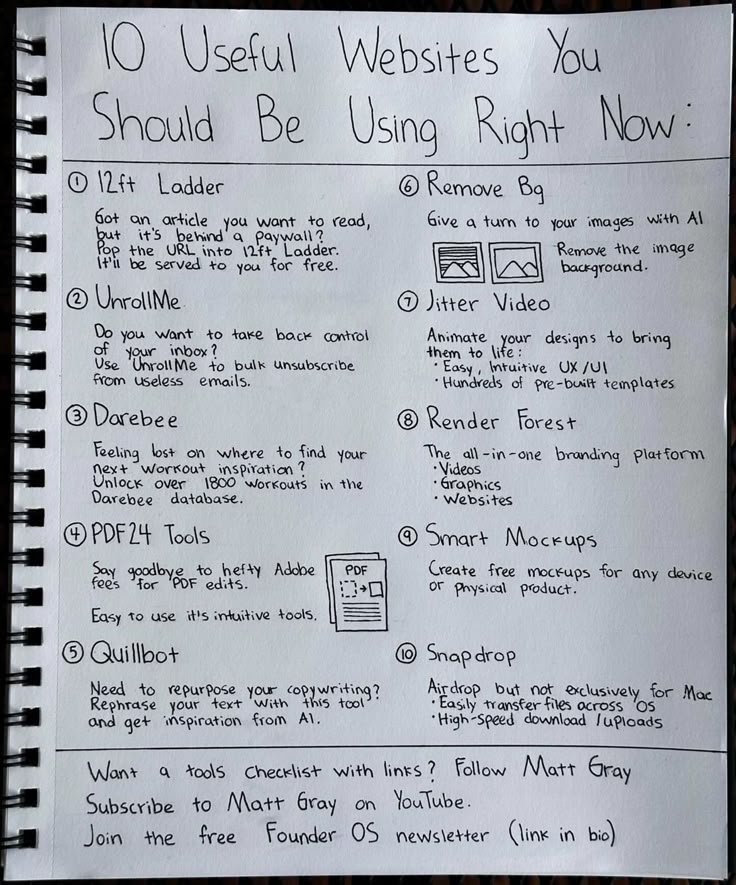 10 Useful Websites You
Should Be Using Right Now:
1 12ft Ladder
Got an article you want to read,
but it's behind a paywall?
Pop the URL into 12ft Ladder.
It'll be served to you for free.
2 UnrollMe
Do you want to take back control
of your inbox?
Use UnrollMe to bulk unsubscribe
from useless emails.
3 Darebee
Feeling lost on where to find your
next workout inspiration?
Unlock over 1800 workouts in the
Darebee database.
4 PDF24 Tools
Say goodbye to hefty Adobe
fees for PDF edits.
Easy to use it's intuitive tools.
PDF
5 Quillbot
Need to repurpose your copywriting?
Rephrase your text with this tool
and get inspiration from AI.
6 Remove Bg
Give a turn to your images with AI
Remove the image
background.
7 Jitter Video
Animate your designs to bring
them to life:
• Easy, Intuitive UX/UI
• Hundreds of pre-built templates
8 Render Forest
The all-in-one branding platform
• Videos
• Graphics
• Websites
9 Smart Mockups
Create free mockups for any device
or physical product.
10 Snapdrop
Airdrop but not exclusively for Mac
• Easily transfer files across OS
• High-speed download/uploads
Want a tools checklist with links? Follow Matt Gray
Subscribe to Matt Gray on YouTube.
Join the free Founder OS newsletter (link in bio)